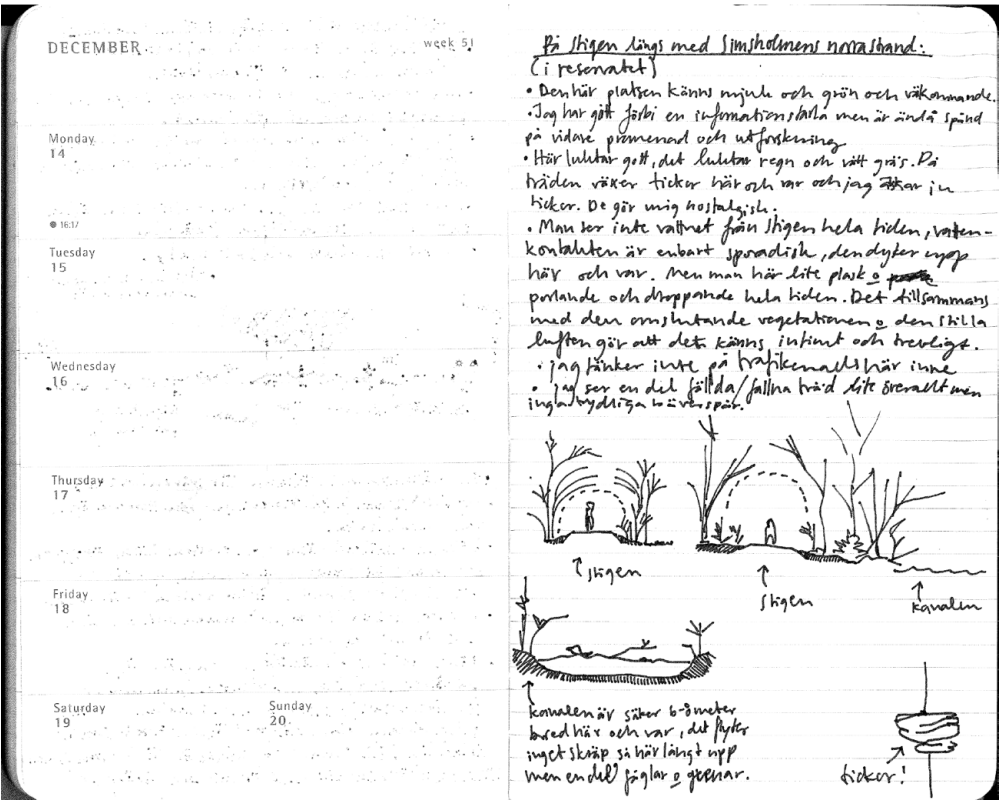 DECEMBER
week 51
Monday
14
16:17
Tuesday
15
Wednesday
16
Thursday
17
Friday
18
Saturday
19
Sunday
20
På stigen längs med Simsholmens norra strand:
(i reservatet)
• Den här platsen känns mjuk och grön och välkomnande.
• Jag har gått förbi en informationstavla men är ändå spänd
på vidare promenad och utforskning
• Här luktar gott, det luktar regn och vått gräs. På
träden växer tickor här och var och jag in
tickor. De gör mig nostalgisk.
• Man ser inte vattnet från stigen hela tiden, vatten-
kontakten är enbart sporadisk, den dyker upp
här och var. Men man hör lite plask o
porlande och droppande hela tiden. Det tillsammans
med den omslutande vegetationen o den stilla
luften gör att det känns intimt och trevligt.
• jag tänker inte på trafiken alls här inne
• jag ser en del fällda/fallna träd lite överallt men
inga tydliga bäverspår.
stigen
stigen
kanalen
kanalen är säker 6-8 meter
bred här och var, det flyter
inget skräp så här långt upp
men en del fåglar o grenar.
tickor!